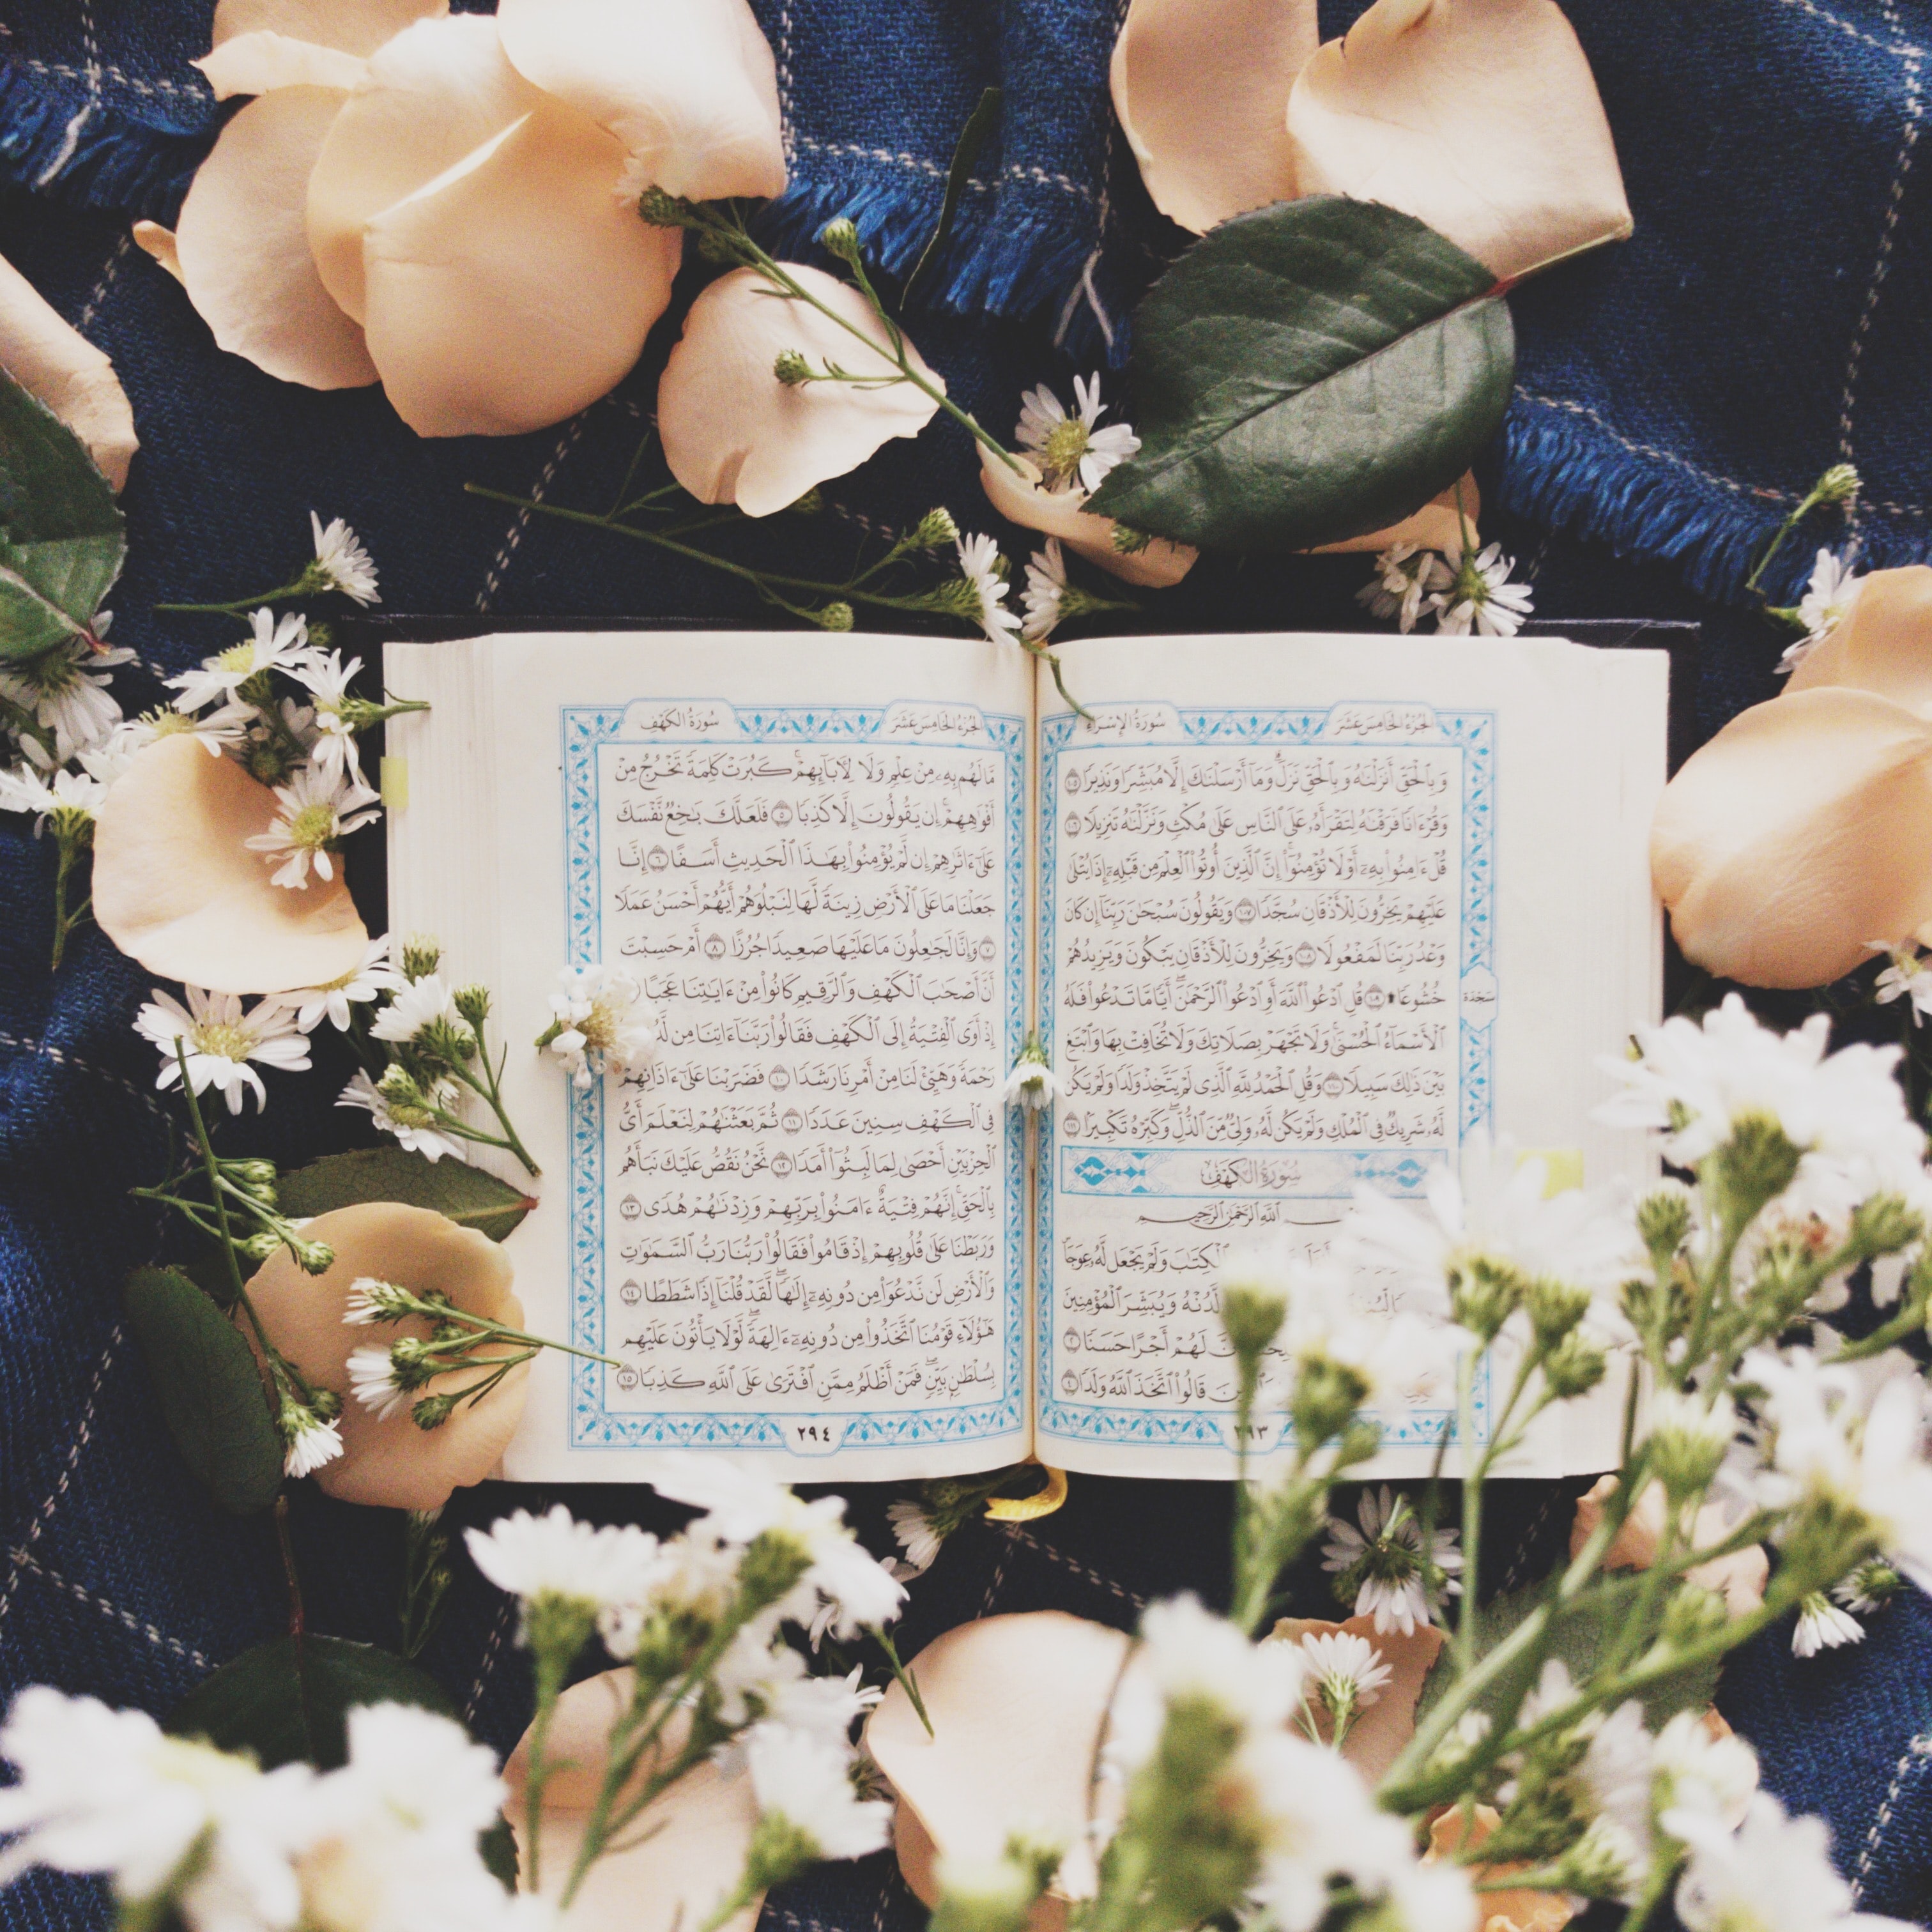 الجزء الخامس عشر سورة الإسراء
وَبِٱلْحَقِّ أَنزَلْنَٰهُ وَبِٱلْحَقِّ نَزَلَ ۗ وَمَآ أَرْسَلْنَٰكَ إِلَّا مُبَشِّرًا وَنَذِيرًا ١٠٥
وَقُرْءَانًا فَرَقْنَٰهُ لِتَقْرَأَهُۥ عَلَى ٱلنَّاسِ عَلَىٰ مُكْثٍ وَنَزَّلْنَٰهُ تَنزِيلًا ١٠٦
قُلْ ءَامِنُوا۟ بِهِۦٓ أَوْ لَا تُؤْمِنُوٓا۟ ۚ إِنَّ ٱلَّذِينَ أُوتُوا۟ ٱلْعِلْمَ مِن قَبْلِهِۦٓ إِذَا يُتْلَىٰ
عَلَيْهِمْ يَخِرُّونَ لِلْأَذْقَانِ سُجَّدًا ١٠٧ وَيَقُولُونَ سُبْحَٰنَ رَبِّنَآ إِن كَانَ
وَعْدُ رَبِّنَا لَمَفْعُولًا ١٠٨ وَيَخِرُّونَ لِلْأَذْقَانِ يَبْكُونَ وَيَزِيدُهُمْ
خُشُوعًا ۩ ١٠٩ قُلِ ٱدْعُوا۟ ٱللَّهَ أَوِ ٱدْعُوا۟ ٱلرَّحْمَٰنَ ۖ أَيًّا مَّا تَدْعُوا۟ فَلَهُ
سجدة
ٱلْأَسْمَآءُ ٱلْحُسْنَىٰ ۚ وَلَا تَجْهَرْ بِصَلَاتِكَ وَلَا تُخَافِتْ بِهَا وَٱبْتَغِ
بَيْنَ ذَٰلِكَ سَبِيلًا ١١٠ وَقُلِ ٱلْحَمْدُ لِلَّهِ ٱلَّذِى لَمْ يَتَّخِذْ وَلَدًا وَلَمْ يَكُن
لَّهُۥ شَرِيكٌ فِى ٱلْمُلْكِ وَلَمْ يَكُن لَّهُۥ وَلِىٌّ مِّنَ ٱلذُّلِّ ۖ وَكَبِّرْهُ تَكْبِيرًۢا ١١١
سورة الكهف
ٱللَّهِ ٱلرَّحْمَٰنِ ٱلرَّحِيمِ
ٱلْكِتَٰبَ وَلَمْ يَجْعَل لَّهُۥ عِوَجَا
لَّدُنْهُ وَيُبَشِّرَ ٱلْمُؤْمِنِينَ
لَهُمْ أَجْرًا حَسَنًا ٢
قَالُوا۟ ٱتَّخَذَ ٱللَّهُ وَلَدًا ٤
٢٩٣
الجزء الخامس عشر سورة الكهف
مَّا لَهُم بِهِۦ مِنْ عِلْمٍ وَلَا لِءَابَآئِهِمْ ۚ كَبُرَتْ كَلِمَةً تَخْرُجُ مِنْ
أَفْوَٰهِهِمْ ۚ إِن يَقُولُونَ إِلَّا كَذِبًا ٥ فَلَعَلَّكَ بَٰخِعٌ نَّفْسَكَ
عَلَىٰٓ ءَاثَٰرِهِمْ إِن لَّمْ يُؤْمِنُوا۟ بِهَٰذَا ٱلْحَدِيثِ أَسَفًا ٦ إِنَّا
جَعَلْنَا مَا عَلَى ٱلْأَرْضِ زِينَةً لَّهَا لِنَبْلُوَهُمْ أَيُّهُمْ أَحْسَنُ عَمَلًا
٧ وَإِنَّا لَجَٰعِلُونَ مَا عَلَيْهَا صَعِيدًا جُرُزًا ٨ أَمْ حَسِبْتَ
أَنَّ أَصْحَٰبَ ٱلْكَهْفِ وَٱلرَّقِيمِ كَانُوا۟ مِنْ ءَايَٰتِنَا عَجَبًا
إِذْ أَوَى ٱلْفِتْيَةُ إِلَى ٱلْكَهْفِ فَقَالُوا۟ رَبَّنَآ ءَاتِنَا مِن
رَحْمَةً وَهَيِّئْ لَنَا مِنْ أَمْرِنَا رَشَدًا ١٠ فَضَرَبْنَا عَلَىٰٓ ءَاذَانِهِمْ
فِى ٱلْكَهْفِ سِنِينَ عَدَدًا ١١ ثُمَّ بَعَثْنَٰهُمْ لِنَعْلَمَ أَىُّ
ٱلْحِزْبَيْنِ أَحْصَىٰ لِمَا لَبِثُوٓا۟ أَمَدًا ١٢ نَّحْنُ نَقُصُّ عَلَيْكَ نَبَأَهُم
بِٱلْحَقِّ ۚ إِنَّهُمْ فِتْيَةٌ ءَامَنُوا۟ بِرَبِّهِمْ وَزِدْنَٰهُمْ هُدًى ١٣
وَرَبَطْنَا عَلَىٰ قُلُوبِهِمْ إِذْ قَامُوا۟ فَقَالُوا۟ رَبُّنَا رَبُّ ٱلسَّمَٰوَٰتِ
وَٱلْأَرْضِ لَن نَّدْعُوَا۟ مِن دُونِهِۦٓ إِلَٰهًا ۖ لَّقَدْ قُلْنَآ إِذًا شَطَطًا ١٤
هَٰٓؤُلَآءِ قَوْمُنَا ٱتَّخَذُوا۟ مِن دُونِهِۦٓ ءَالِهَةً ۖ لَّوْلَا يَأْتُونَ عَلَيْهِم
بِسُلْطَٰنٍۭ بَيِّنٍ ۖ فَمَنْ أَظْلَمُ مِمَّنِ ٱفْتَرَىٰ عَلَى ٱللَّهِ كَذِبًا ١٥
٢٩٤